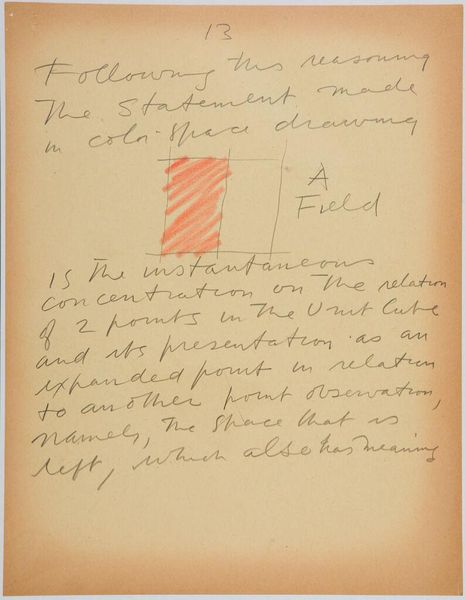 13
Following this reasoning
The Statement made
in color-space drawing
A
Field
is the instantaneous
concentration on the relation
of 2 points in the Unit Cube
and its presentation as an
expanded point in relation
to another point observation,
namely, the space that is
left, which also has meaning